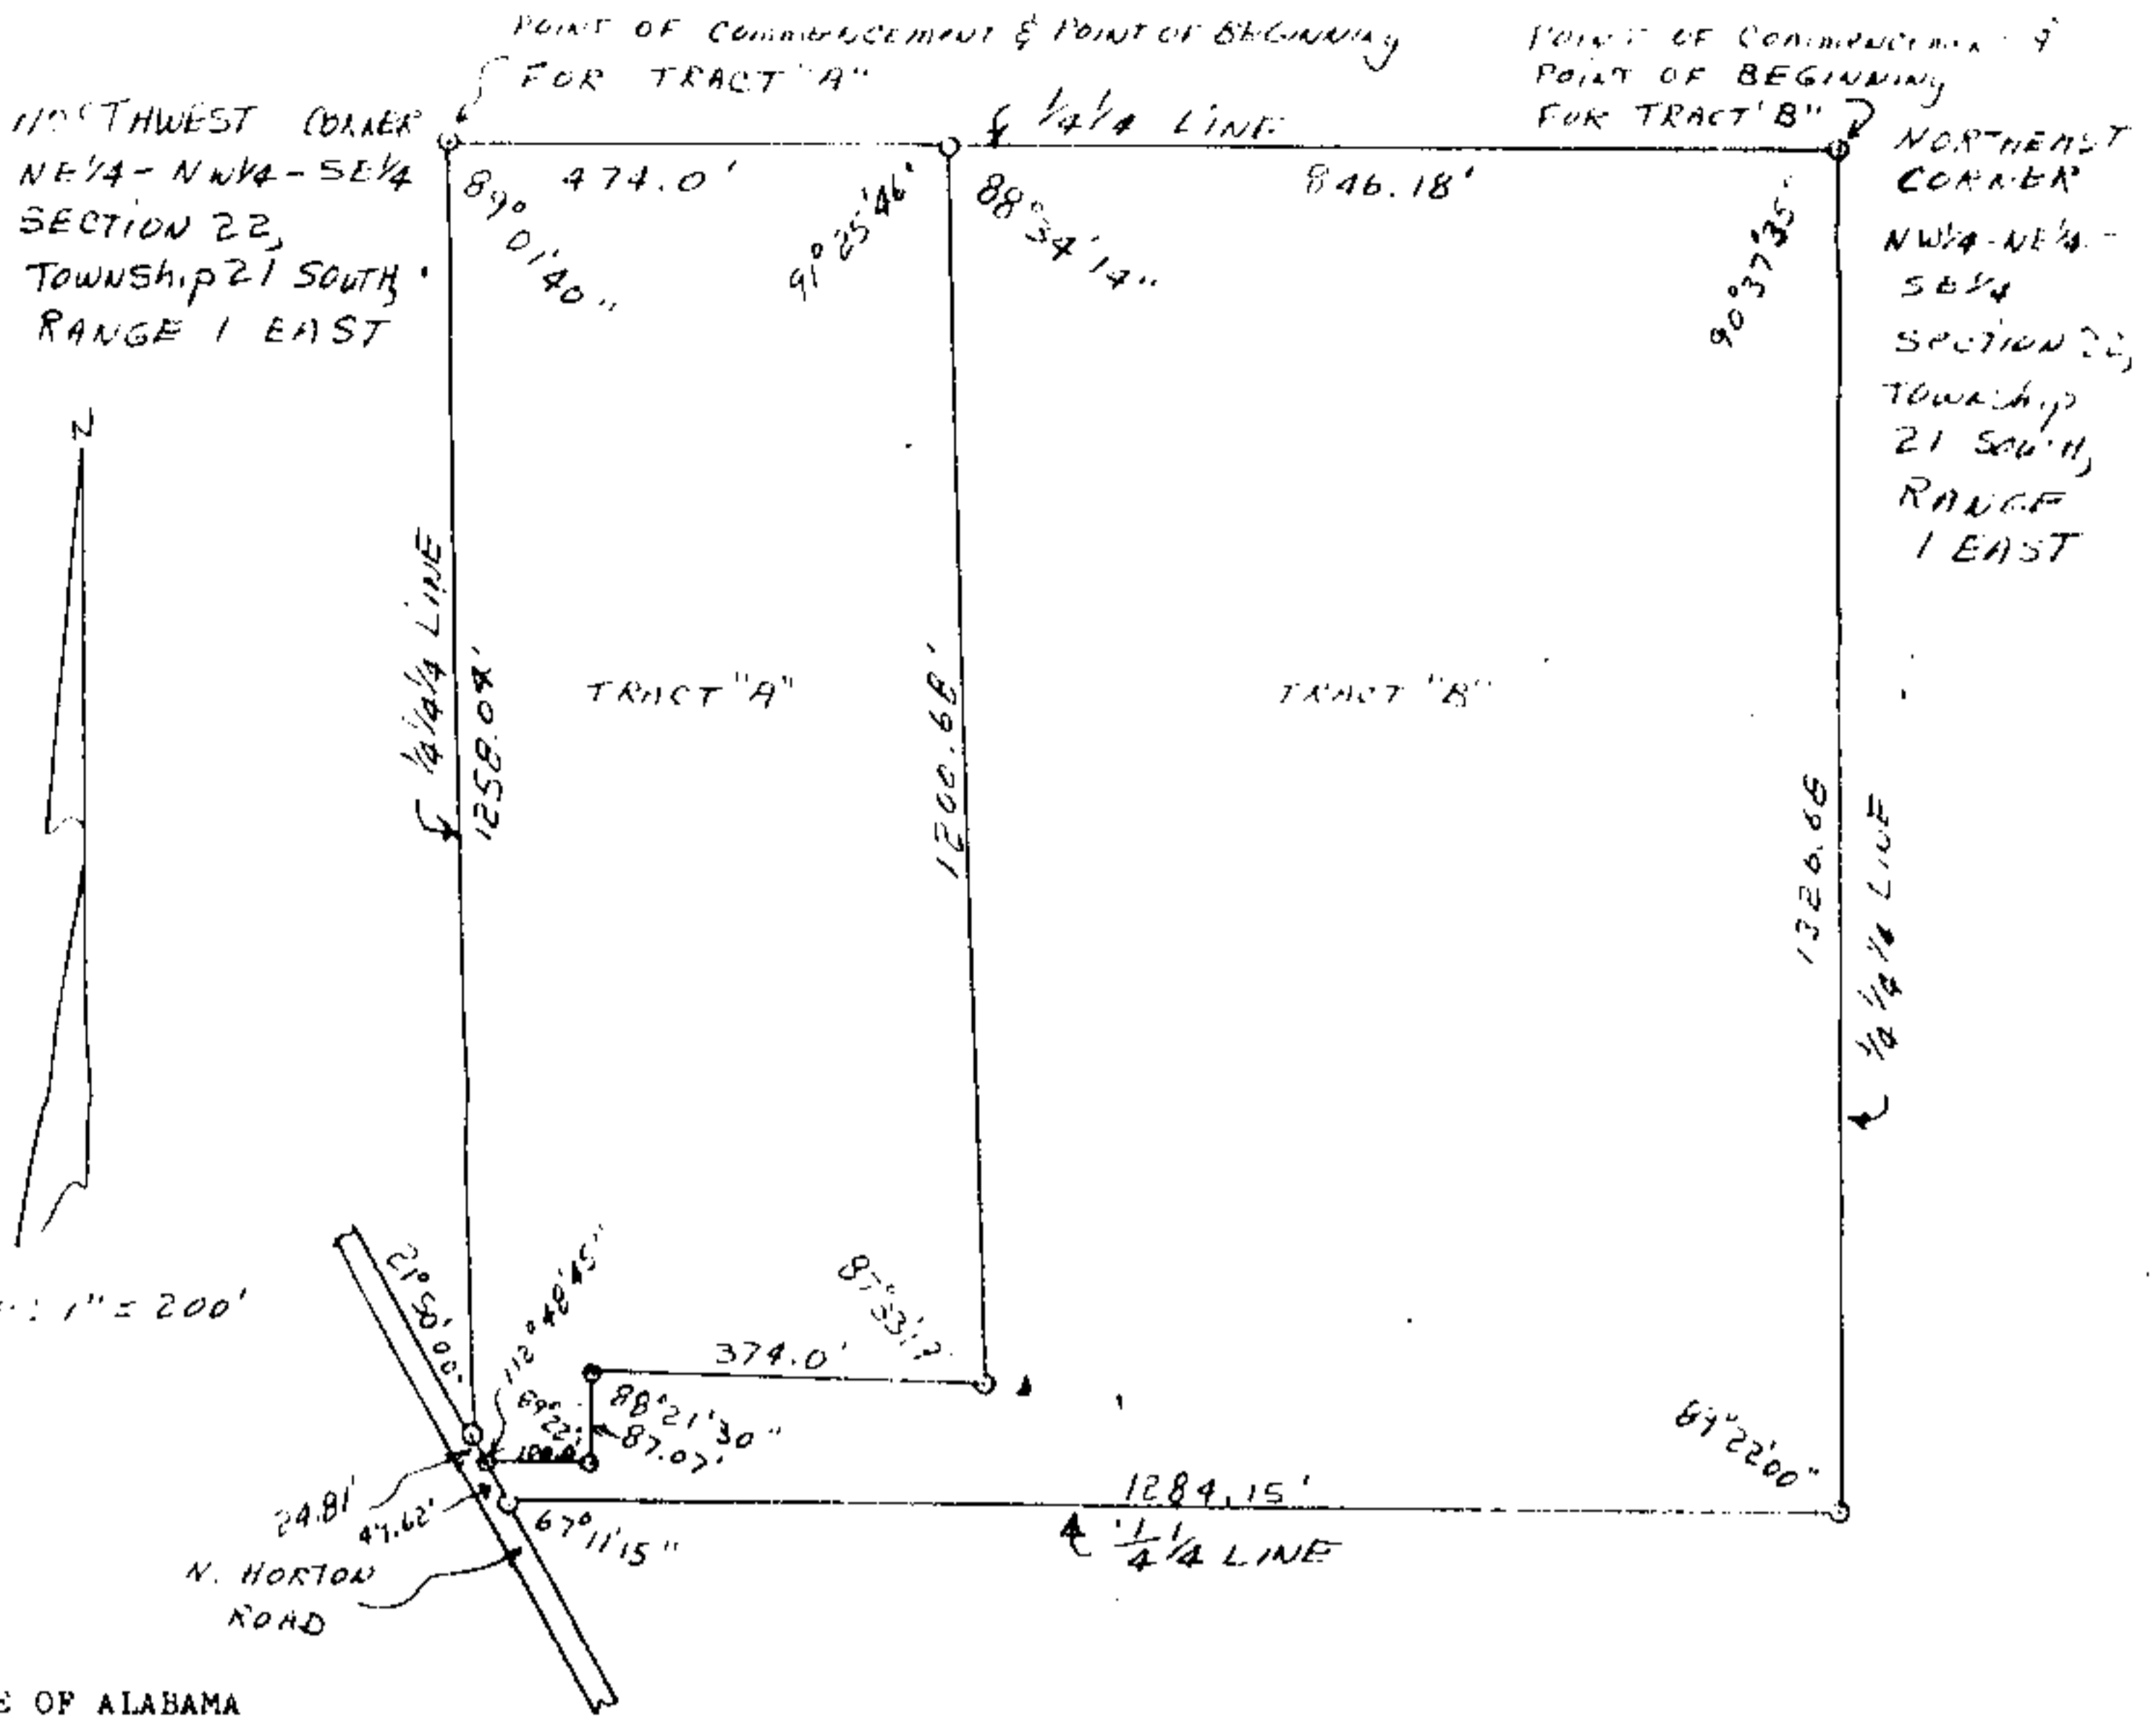 POINT OF COMMENCEMENT & POINT OF BEGINNING
FOR TRACT "A"
POINT OF COMMENCEMENT &
POINT OF BEGINNING
FOR TRACT "B"
NORTHWEST CORNER
NE1/4 - NW1/4 - SE1/4
SECTION 22,
TOWNSHIP 21 SOUTH,
RANGE 1 EAST
1/4 1/4 LINE
NORTHEAST
CORNER
NW1/4-NE1/4-
SE1/4
SECTION 22,
TOWNSHIP
21 SOUTH,
RANGE
1 EAST
474.0'
846.18'
89° 01'40"
91° 25'46"
88° 34'14"
90° 37'35"
N
1/4 1/4 1/4 LINE
1258.04'
TRACT "A"
1200.68'
TRACT "B"
1326.68
1/4 1/4 1/4 LINE
1" = 200'
21° 58' 00"
112° 48'45"
87° 33'
374.0'
89° 22'
88° 21'30"
87.07'
100.0'
89° 22'00"
24.81'
47.62'
67° 11'15"
1284.15'
1/4 1/4 LINE
N. HORTON
ROAD
E OF ALABAMA